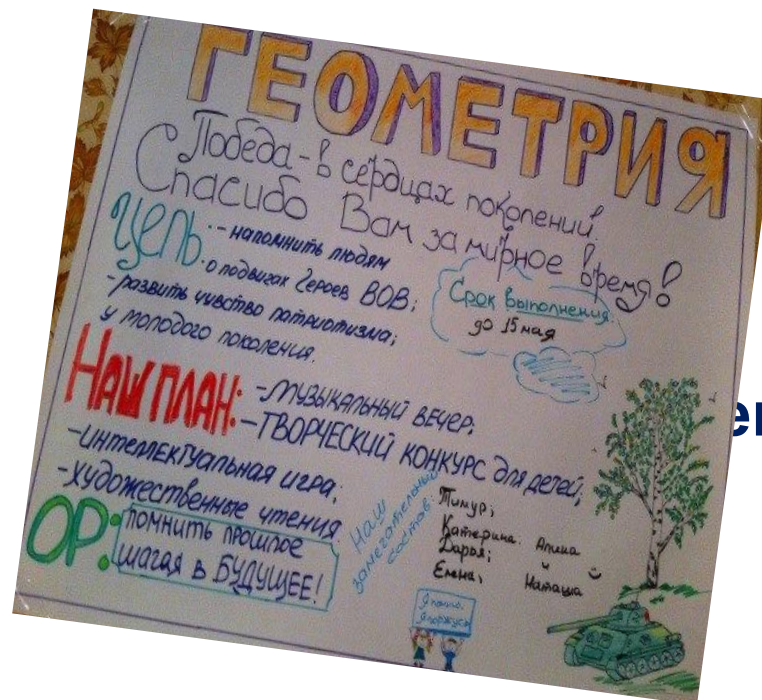 ГЕОМЕТРИЯ
Победа - в сердцах поколений.
Спасибо Вам за мирное время!
ЦЕЛЬ: - напомнить людям
о подвигах Героев ВОВ;
- развить чувство патриотизма;
у молодого поколения.
Срок выполнения:
до 15 мая
НАШ ПЛАН: - МУЗЫКАЛЬНЫЙ ВЕЧЕР;
- ТВОРЧЕСКИЙ КОНКУРС для детей;
- интеллектуальная игра;
- художественные чтения.
ОР: ПОМНИТЬ ПРОШЛОЕ
ШАГАЯ В БУДУЩЕЕ!
Наш
замечательный
состав:
Тимур;
Катерина; Алина
Дарья; и
Елена; Наташа
Я помню,
Я горжусь